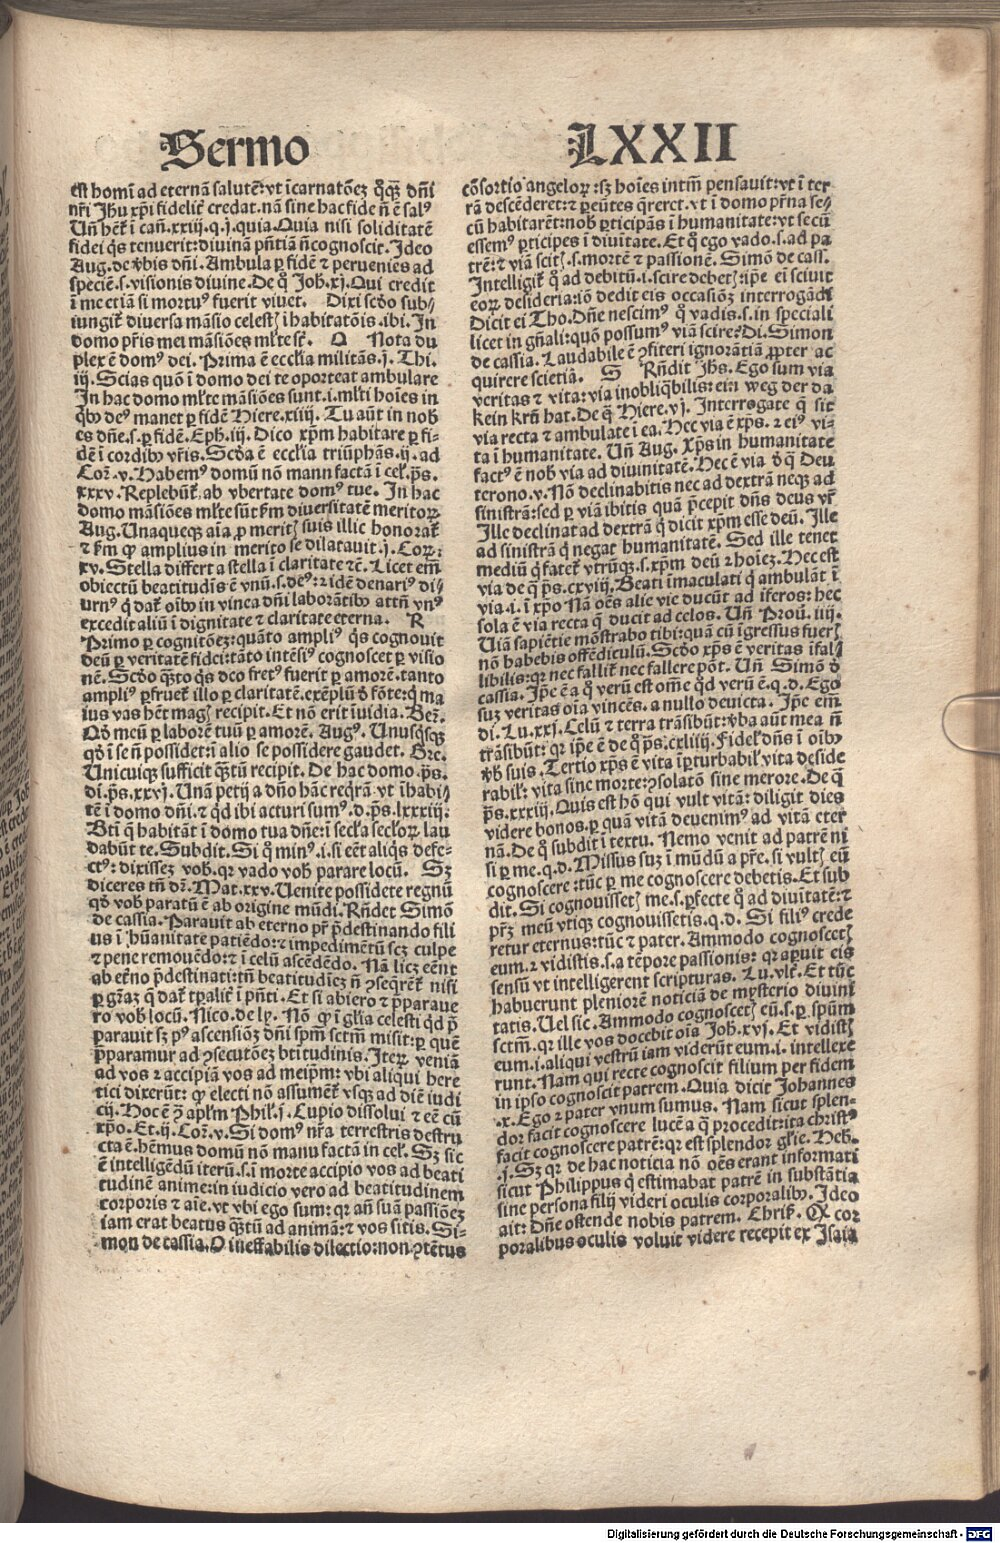 Sermo
LXXII
est homĩ ad eternã salutẽ: vt ĩcarnatõeȝ qͦqȝ dñi
nr̃i Jhũ xp̃i fidelitr̃ credat. nã sine hac fide ñ ẽ salꝰ
Uñ hẽtr̃ ĩ cañ. xxiij. q. j. quia. Quia nisi soliditatẽ
fidei qͥs tenuerit: diuinã pñtiã ñ cognoscit. Ideo
Aug. de v̓bis dñi. Ambula ꝑ fidẽ ⁊ peruenies ad
speciẽ. s. visionis diuine. De qͦ Joh. xj. Qui credit
ĩ me etiã si mortuꝰ fuerit viuet. Dixi scd̓o sub/
iungitr̃ diuersa mãsio celestꝭ ĩhabitatõis. ibi. In
domo pr̃is mei mãsiões ml̓te sr̃. Q Nota du
plex ẽ domꝰ dei. Prima ẽ eccl̓ia militãs. j. Thi.
iij. Scias quõ ĩ domo dei te oporteat ambulare
In hac domo ml̓te mãsiões sunt. i. ml̓ti hoĩes in
qͥbꝰ deꝰ manet ꝑ fidẽ Hiere. xiiij. Tu aũt in nob̓
es dñe. s. ꝑ fidẽ. Eph. iij. Dico xp̃m habitare ꝑ fi-
dẽ ĩ cordibꝰ vr̃is. Scd̓a ẽ eccl̓ia triũphãs. ij. ad
Coꝝ. v. Habemꝰ domũ nõ manu factã ĩ cel̓. p̃s.
xxxv. Replebũtr̃ ab vbertate domꝰ tue. In hac
domo mãsiões ml̓te sũt ẜm diuersitatẽ meritoꝝ.
Aug. Unaqueqȝ aĩa ꝓ meritꝭ suis illic honoratr̃
⁊ ẜm ꝙ amplius in merito se dilatauit. j. Coꝝ.
xv. Stella differt a stella ĩ claritate ⁊c̃. Licet em̃
obiectũ beatitudĩs ẽ vnũ. s. deꝰ: ⁊ idẽ denariꝰ di/
urnꝰ qͥ datr̃ oĩbꝰ in vinea dñi laborãtibꝰ attñ vnꝰ
excedit aliũ ĩ dignitate ⁊ claritate eterna. R
Primo ꝑ cognitõeȝ: quãto ampliꝰ qͥs cognouit
deũ ꝑ veritatẽ fidei: tãto intẽsiꝰ cognoscet ꝑ visio
nẽ. Scd̓o qͣnto qͥs deo fretꝰ fuerit ꝑ amorẽ. tanto
ampliꝰ ꝑfruetr̃ illo ꝑ claritatẽ. exẽplũ d̓ fõte: qͥ ma
ius vas hẽt magꝭ recipit. Et nõ erit ĩuidia. Ber̃.
Qd̓ meũ ꝑ laborẽ tuũ ꝑ amorẽ. Augꝰ. Unusqͥsqȝ
qd̓ ĩ se ñ possidet: ĩ alio se possidere gaudet. Gre.
Unicuiqȝ sufficit qͣntũ recipit. De hac domo. p̃s.
di. p̃s. xxvj. Unã petij a dño hãc reqͥrã vt ĩhabi/
tẽ ĩ domo dñi. ⁊ qd̓ ibi acturi sumꝰ. d. p̃s. lxxxiij.
Bt̃i qͥ habitãt ĩ domo tua dñe: ĩ secl̓a secl̓oꝝ lau
dabũt te. Subdit. Si qͦ minꝰ. i. si eẽt aliqͥs defe-
ctꝰ: dixisseȝ vob̓. qꝛ vado vob̓ parare locũ. Sȝ
diceres tñ dr̃. Mat. xxv. Uenite possidete regnũ
qd̓ vob̓ paratũ ẽ ab origine mũdi. Rñdet Simõ
de cassia. Parauit ab eterno pr̃ p̃destinando fili
us ĩ hũanitate patiẽdo: ⁊ impedimẽtũ scȝ culpe
⁊ pene remouẽdo: ⁊ ĩ celũ ascẽdẽdo. Nã licȝ eẽnt
ab et̓no p̃destinati: tñ beatitudĩeȝ ñ ꝯseqr̃etr̃ nisi
ꝑ gr̃aȝ qͥ datr̃ tꝑalitr̃ ĩ pñti. Et si abiero ⁊ p̃paraue
ro vob̓ locũ. Nico. de ly. Nõ ꝙ ĩ gl̓ia celesti qͥd p̃
parauit sȝ pꝰ ascensiõȝ dñi spm̃ sctm̃ misit: ꝑ quẽ
p̃paramur ad ꝯsecutõeȝ bt̃itudinis. Iteꝝ veniã
ad vos ⁊ accipiã vos ad meip̃m: vbi aliqui here
tici dixerũt: ꝙ electi nõ assumẽtr̃ vsqȝ ad diẽ iudi
cij. Hoc ẽ ꝯ̃ apl̓m Phil̓. j. Cupio dissolui ⁊ eẽ cũ
xp̃o. Et. ij. Coꝝ. v. Si domꝰ nr̃a terrestris destru
cta ẽ. hẽmus domũ nõ manu factã in cel̓. Sȝ sic
ẽ intelligẽdũ iterũ. s. ĩ morte accipio vos ad beati
tudinẽ anime: in iudicio vero ad beatitudinem
corporis ⁊ aĩe. vt vbi ego sum: qꝛ añ suã passiõeȝ
iam erat beatus qͣntũ ad animã: ⁊ vos sitis. Si-
mon de cassia. O ineffabilis dilectio: non ꝯtẽtus
cõsortio angeloꝝ: sȝ hoĩes intm̃ pensauit: vt ĩ ter
rã descẽderet: ⁊ ꝑeũtes qͥreret. vt ĩ domo pr̃na se/
cũ habitarẽt: nob̓ ꝑticipãs ĩ humanitate: vt secũ
essemꝰ ꝑticipes ĩ diuĩtate. Et qͦ ego vado. s. ad pa
trẽ: ⁊ viã scitꝭ. s. mortẽ ⁊ passionẽ. Simõ de cass.
Intelligitr̃ qͦ ad debitũ. i. scire debetꝭ: ip̃e ei sciuit
eoꝝ desideria: iõ dedit eis occasiõȝ interrogãdi
Dicit ei Tho. Dñe nescimꝰ qͦ vadis. s. in speciali
licet in gñali: quõ possumꝰ viã scire? Di. Simon
de cassia. Laudabile ẽ ꝯfiteri ignorãtiã ꝓpter ac
quirere scietiã. S Rñdit Jh̃s. Ego sum via
veritas ⁊ vita: via inobliqͣbilis: ein weg der da
kein krũ hat. De qͣ Hiere. vj. Interrogate qͣ sit
via recta ⁊ ambulate ĩ ea. Hec via ẽ xp̃s. ⁊ eiꝰ vi-
ta ĩ humanitate. Uñ Aug. Xp̃s in humanitate
factꝰ ẽ nob̓ via ad diuinitatẽ. Hec ẽ via d̓ qͣ Deu
terono. v. Nõ declinabitis nec ad dextrã neqȝ ad
sinistrã: sed ꝑ viã ibitis quã p̃cepit dñs deus vr̃
Ille declinat ad dextrã qͥ dicit xp̃m esse deũ. Ille
ad sinistrã qͥ negat humanitatẽ. Sed ille tenet
mediũ qͥ fatetr̃ vtrũqȝ. s. xp̃m deũ ⁊ hoĩeȝ. Hec est
via de qͣ p̃s. cxviij. Beati ĩmaculati qͥ ambulãt ĩ
via. i. ĩ xp̃o Nã oẽs alie vie ducũt ad ĩferos: hec
sola ẽ via recta qͥ ducit ad celos. Uñ Prou. iiij.
Uiã sapiẽtie mõstrabo tibi: quã cũ ĩgressus fuerꝭ
nõ habebis offẽdiculũ. Scd̓o xp̃s ẽ veritas ĩfal/
libilis: qꝛ nec fallitr̃ nec fallere põt. Uñ Simõ d̓
cassia. Ip̃e ẽ a qͦ verũ est om̃e qd̓ verũ ẽ. q. d. Ego
suȝ veritas oĩa vincẽs. a nullo deuicta. Ip̃e em̃
di. Lu. xxj. Celũ ⁊ terra trãsibũt: v̓ba aũt mea ñ
trãsibũt: qꝛ ip̃e ẽ de qͦ p̃s. cxliiij. Fidel̓ dñs ĩ oĩbꝰ
v̓b̓ suis. Tertio xp̃s ẽ vita ĩꝑturbabil̓ vita deside
rabil̓: vita sine morte: ꝯsolatõ sine merore. De qͣ
p̃s. xxxiij. Quis est hõ qui vult vitã: diligit dies
videre bonos. ꝑ quã vitã deuenimꝰ ad vitã eter
nã. De qͣ subdit ĩ textu. Nemo venit ad patrẽ ni
si ꝑ me. q. d. Missus suȝ ĩ mũdũ a pr̃e. si vultꝭ eũ
cognoscere: tũc ꝑ me cognoscere debetis. Et sub
dit. Si cognouissetꝭ me. s. ꝑfecte qͦ ad diuĩtatẽ: ⁊
pr̃ȝ meũ vtiqȝ cognouissetis. q. d. Si filiꝰ crede
retur eternus: tũc ⁊ pater. Ammodo cognoscetꝭ
eum. ⁊ vidistis. s. a tẽpore passionis: qꝛ aꝑuit eis
sensũ vt intelligerent scripturas. Lu. vl̓t. Et tũc
habuerunt pleniorẽ noticiã de mysterio diuini
tatis. Uel sic. Ammodo cognoscetꝭ eũ. s. ꝑ spũm
sctm̃. qꝛ ille vos docebit oĩa Joh. xvj. Et vidistꝭ
eum. i. aliqui vestrũ iam viderũt eum. i. intellexe
runt. Nam qui recte cognoscit filium per fidem
in ipso cognoscit patrem. Quia dicit Johannes
.x. Ego ⁊ pater vnum sumus. Nam sicut splen-
dor facit cognoscere lucẽ a qͦ procedit: ita christꝰ
facit cognoscere patrẽ: qꝛ est splendor gl̓ie. Heb̓.
.j. Sȝ qꝛ de hac noticia nõ oẽs erant informati
sicut Philippus qͥ estimabat patrẽ in substãtia
sine persona filij videri oculis corporalibꝰ. Ideo
ait: Dñe ostende nobis patrem. Chriß. Q̃ cor
poralibus oculis voluit videre recepit ex Isaia
Digitalisierung gefördert durch die Deutsche Forschungsgemeinschaft - DFG